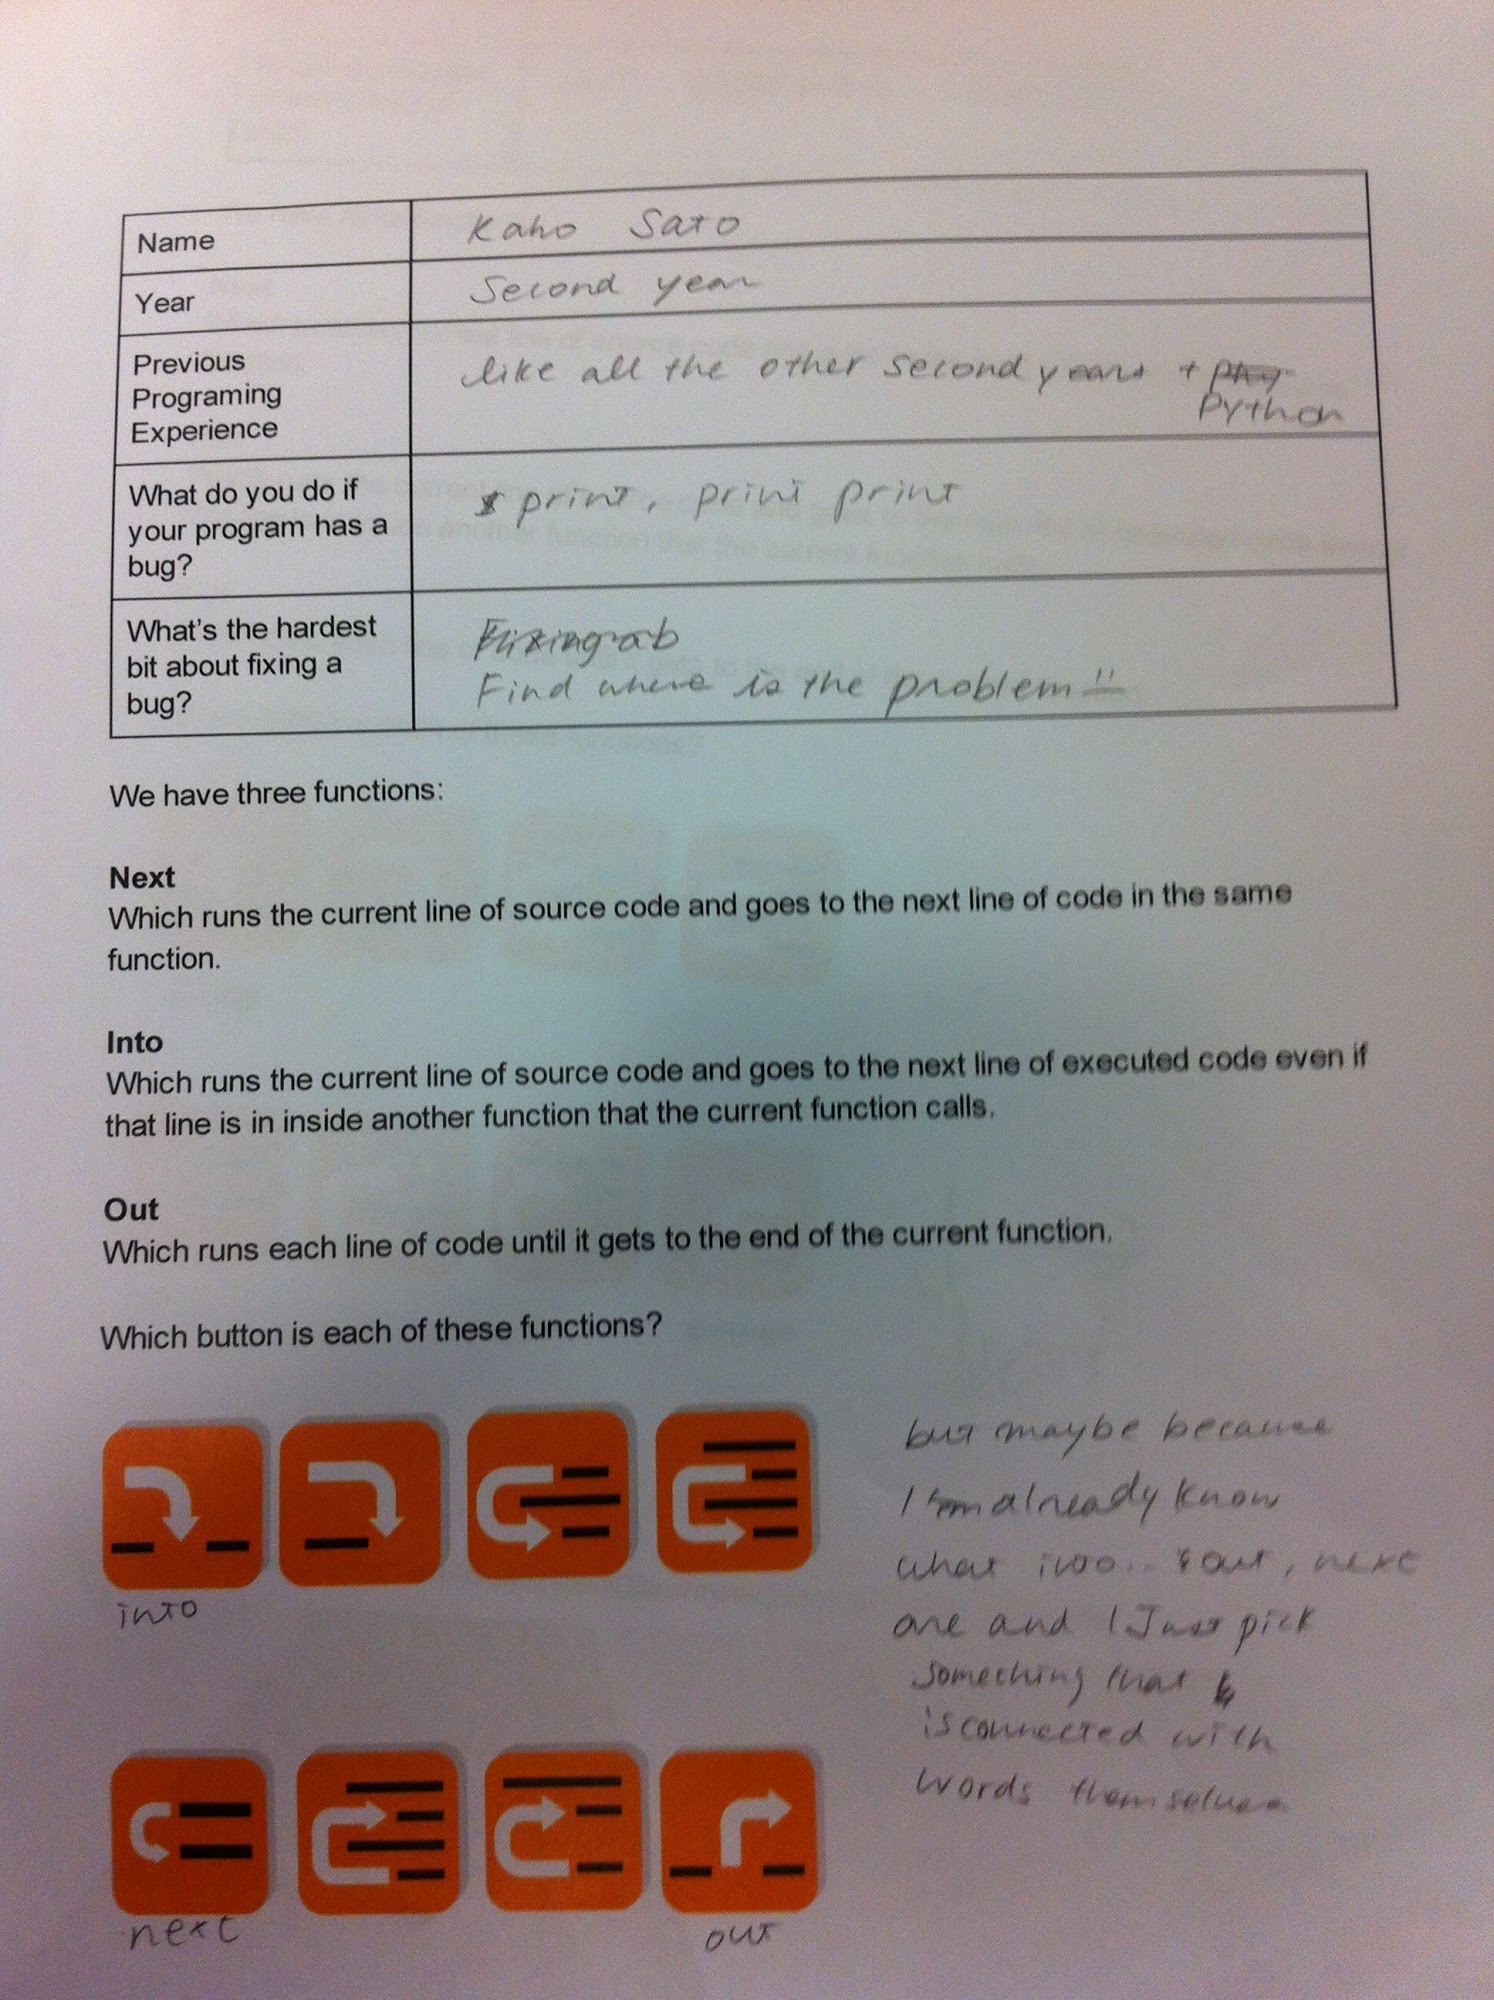 Name
Kaho Sato
Year
Second year
Previous
Programing
Experience
like all the other second years +
Python
What do you do if
your program has a
bug?
print, print print
What's the hardest
bit about fixing a
bug?
Fixing a b
Find where is the problem!!
We have three functions:
Next
Which runs the current line of source code and goes to the next line of code in the same
function.
Into
Which runs the current line of source code and goes to the next line of executed code even if
that line is in inside another function that the current function calls.
Out
Which runs each line of code until it gets to the end of the current function.
Which button is each of these functions?
into
but maybe because
I already know
what into.. out, next
are and I Just pick
something that
is connected with
words themselves
next
out